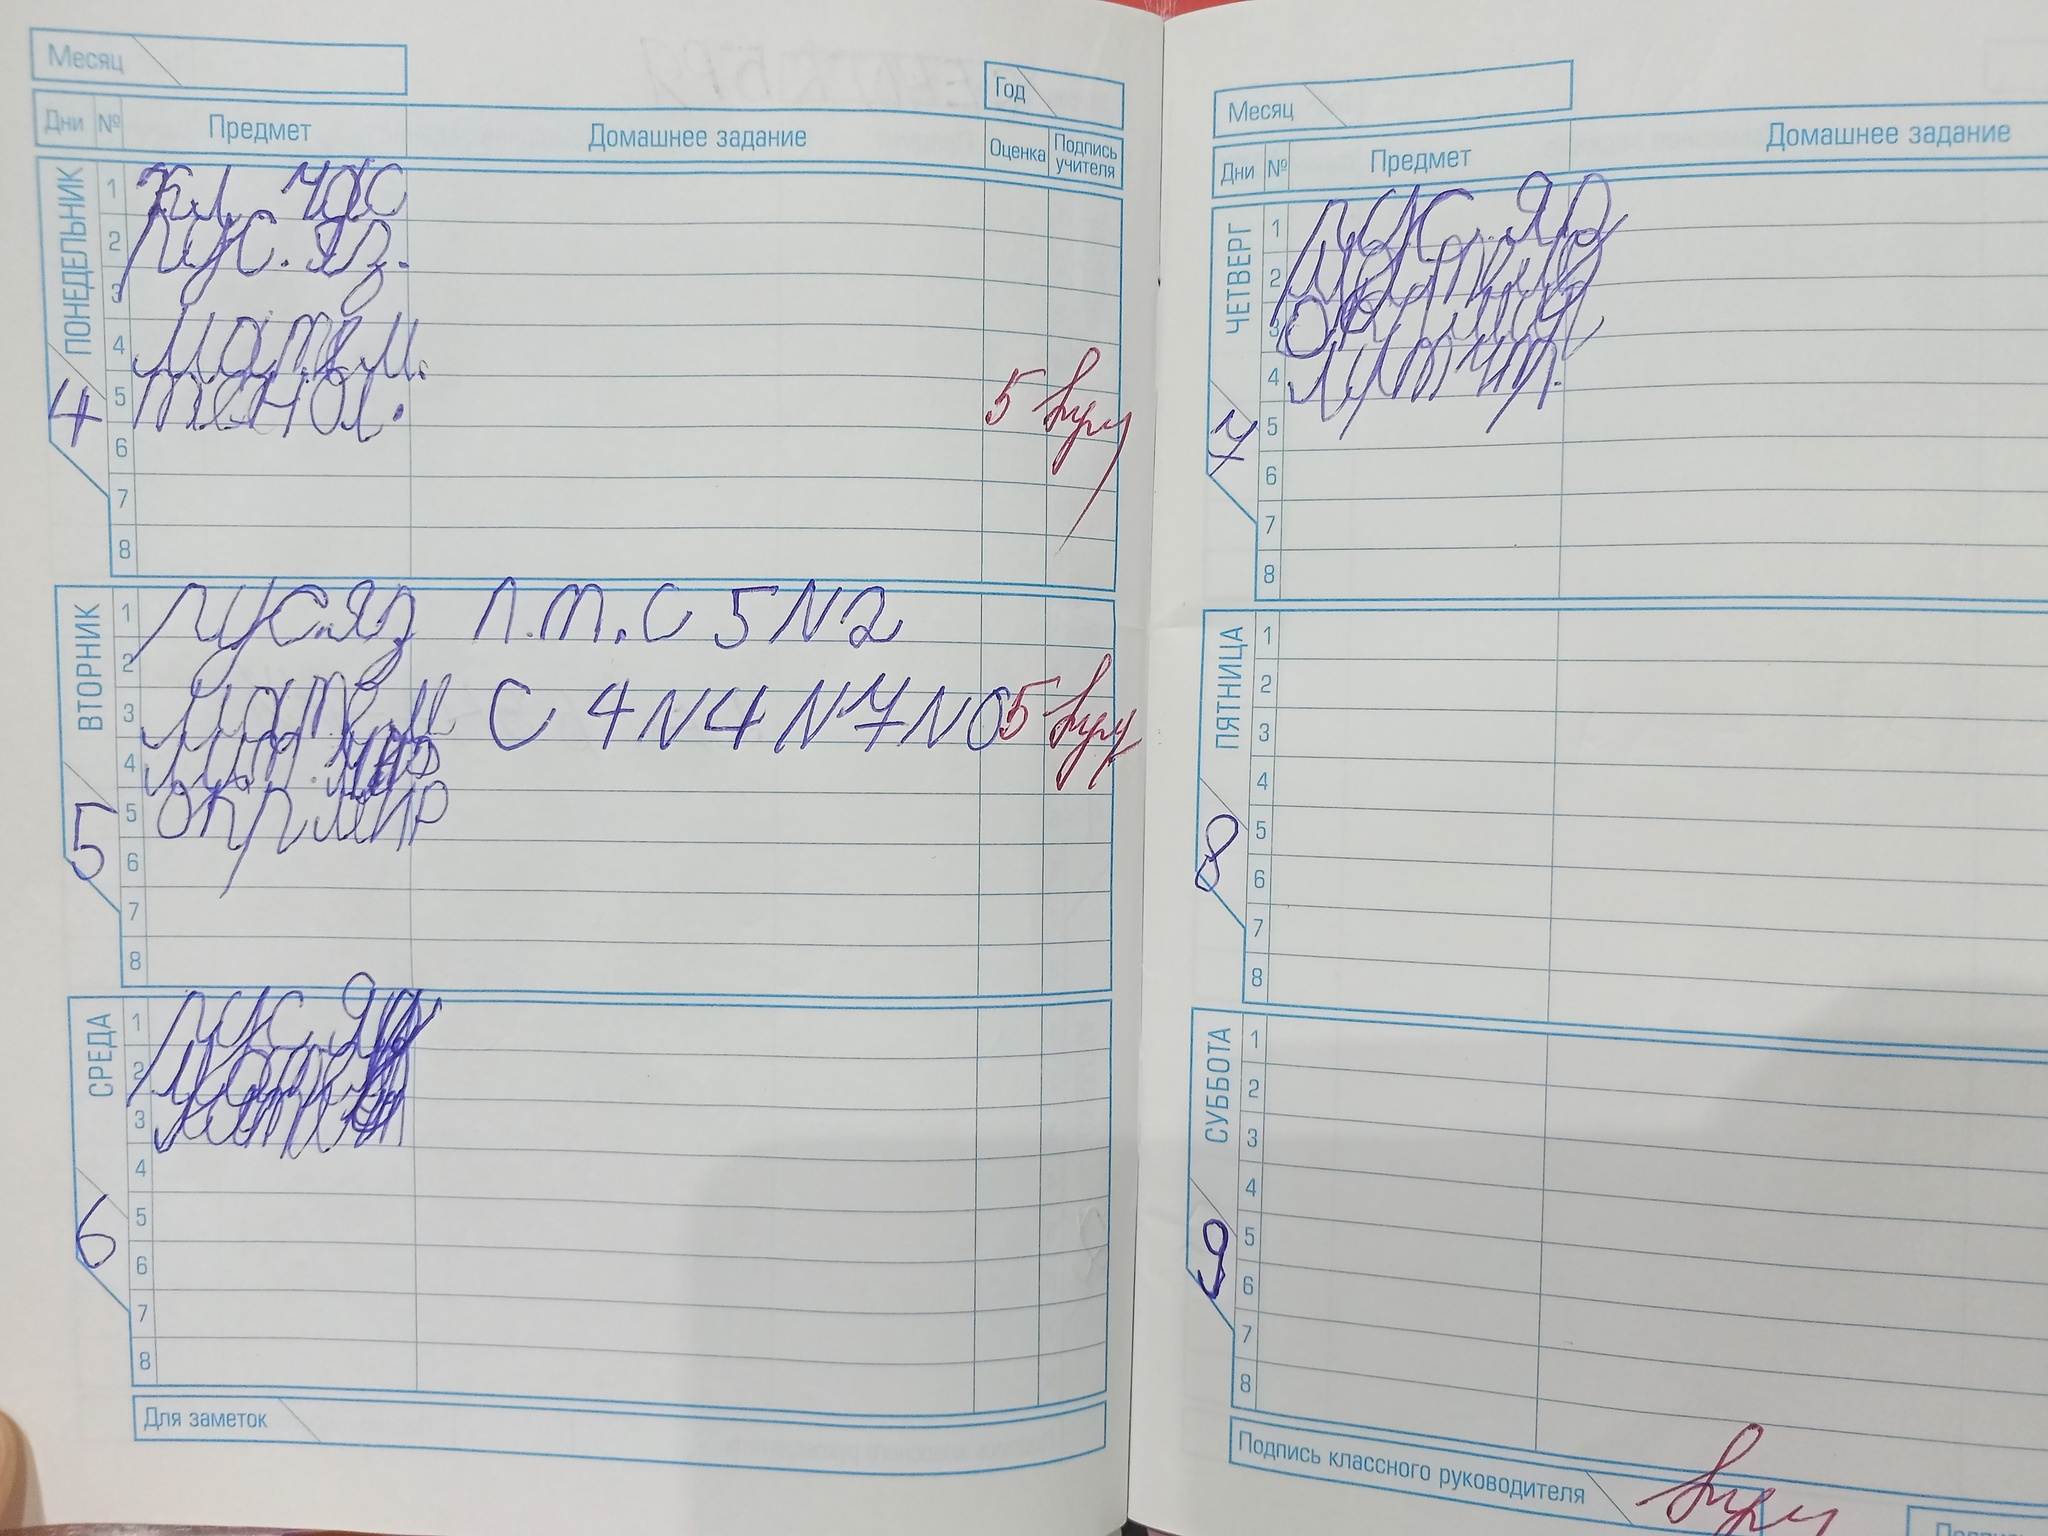 Месяц
Год
Дни № Предмет Домашнее задание Оценка Подпись учителя
ПОНЕДЕЛЬНИК
4
1 Кл. час
2 Рус. яз.
3
4 Матем.
5 технол. 5
6
7
8
ВТОРНИК
5
1 Рус.яз п.т. С 5 N2
2
3 Матем С 4 N4 N7 N 5
4
5 окр мир
6
7
8
СРЕДА
6
1 Рус.
2
3
4
5
6
7
8
Для заметок
Месяц
Дни № Предмет Домашнее задание
ЧЕТВЕРГ
7
1 Рус. яз
2
3
4 Лит чт.
5
6
7
8
ПЯТНИЦА
8
1
2
3
4
5
6
7
8
СУББОТА
9
1
2
3
4
5
6
7
8
Подпись классного руководителя